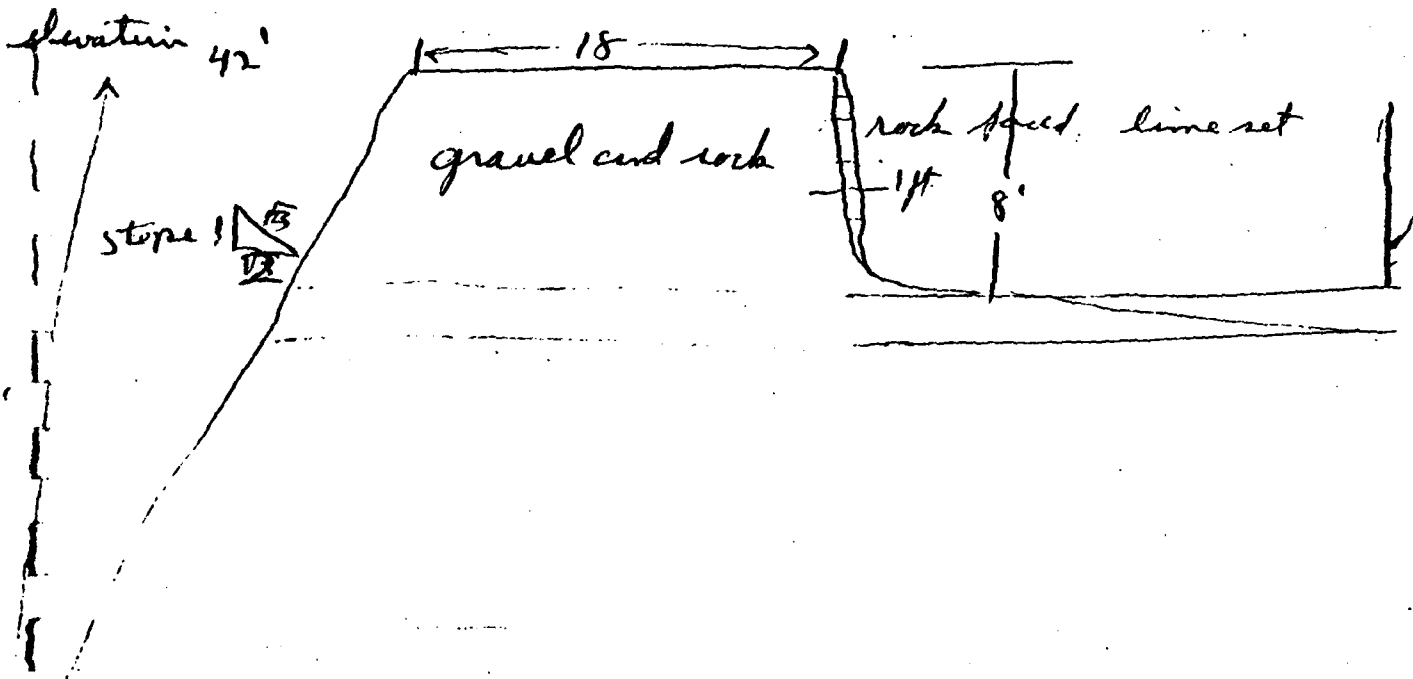 elevation 42'
18
gravel and rock
rock faced lime set
1 ft
8'
slope 1 √3
√2